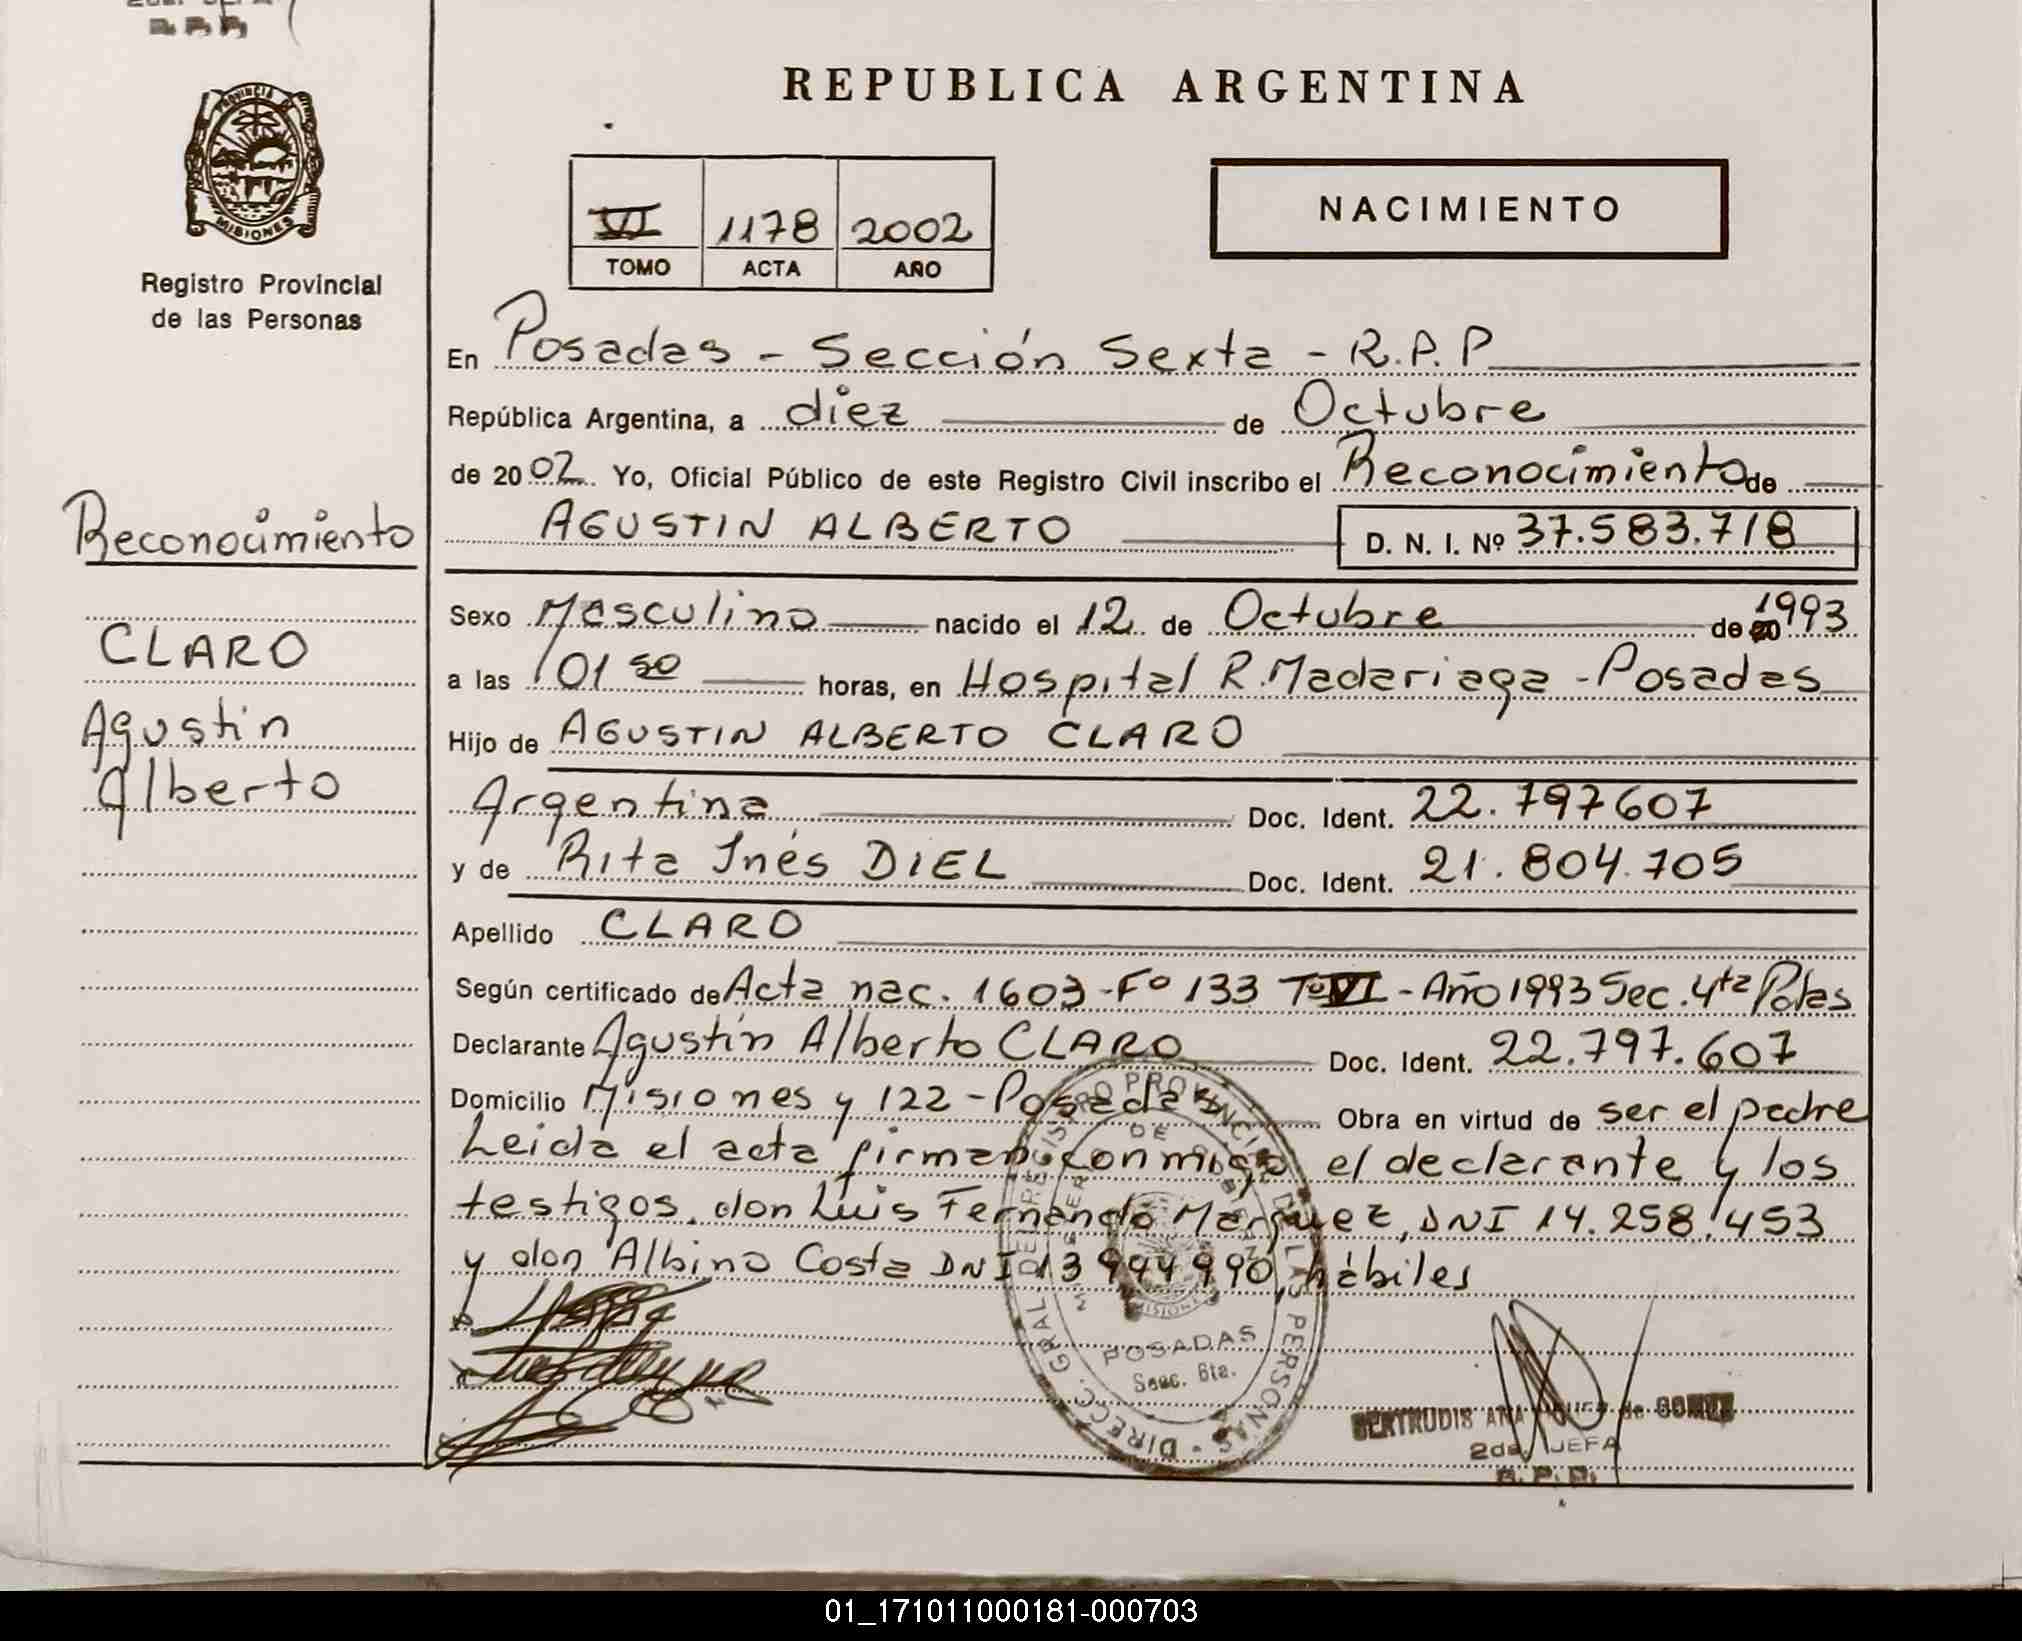 REPUBLICA ARGENTINA
PROVINCIA DE
MISIONES
Registro Provincial
de las Personas
VI 1178 2002
TOMO ACTA AÑO
NACIMIENTO
En Posadas - Sección Sexta - R.P.P
República Argentina, a diez de Octubre
de 2002 Yo, Oficial Público de este Registro Civil inscribo el Reconocimiento de
AGUSTIN ALBERTO D. N. I. Nº 37.583.718
Reconocimiento
CLARO
Agustin
Alberto
Sexo Masculino nacido el 12 de Octubre de 20 1993
a las 01 50 horas, en Hospital R. Madariaga - Posadas
Hijo de AGUSTIN ALBERTO CLARO
Argentina Doc. Ident. 22.797607
y de Rita Inés DIEL Doc. Ident. 21.804.705
Apellido CLARO
Según certificado de Acta nac. 1603 - Fº 133 Tº VI - Año 1993 Sec. 4ta Pdas
Declarante Agustín Alberto CLARO Doc. Ident. 22.797.607
Domicilio Misiones y 122 - Posadas Obra en virtud de ser el padre
Leida el acta firman conmigo el declarante y los
testigos, don Luis Fernando Marquez, DNI 14.258.453
y don Albino Costa DNI 13 944 990, hábiles
DIRECC. GRAL. DEL REGISTRO PROVINCIAL DE LAS PERSONAS
MISIONES
POSADAS
Secc. 6ta.
GERTRUDIS ANA de GOMEZ
2da. JEFA
R. P. P.
01_171011000181-000703